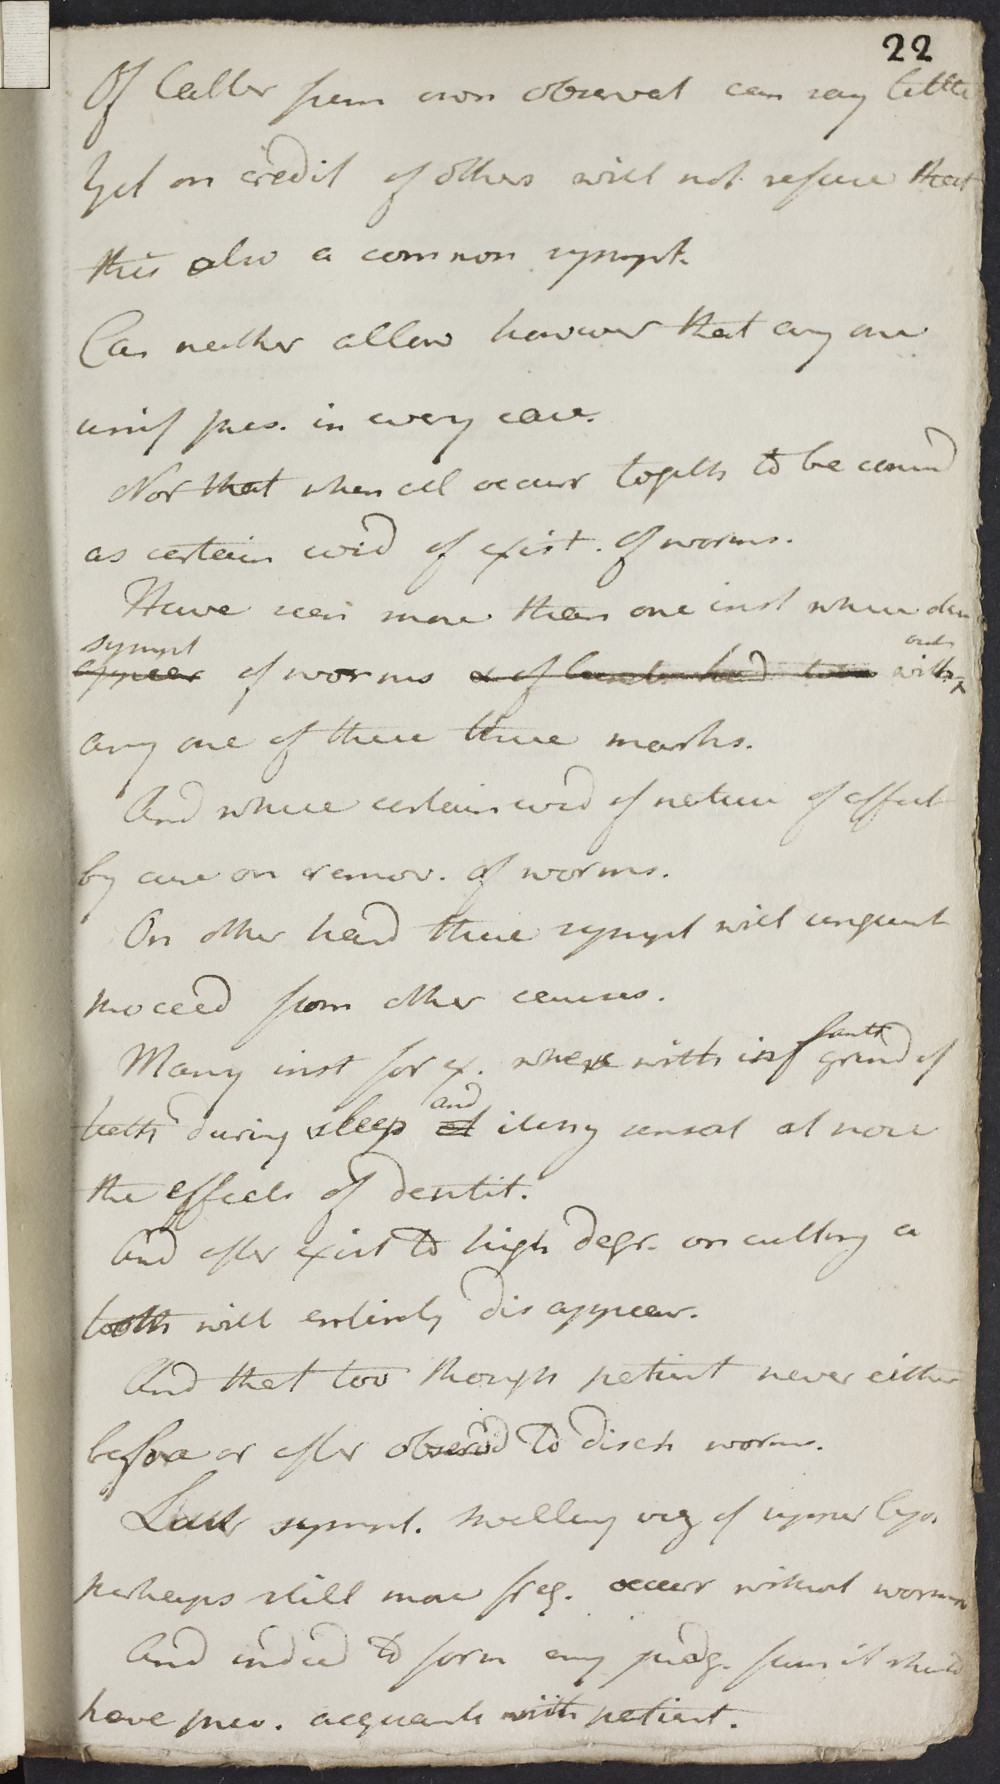 22
Of latter from own observat can say little
Yet on credit of others will not refuse that
this also a common sympt.
Can neither allow however that any one
unif pres. in every case.
Nor that when all occurr togeth to be consid
as certain evid of exist. of worms.
Have seen more than one inst where
sympt
appear of worms with
any one of these three marks.
And where certain evid of nature of affect
by cure on remov. of worms.
On other hand these sympt will unquest
proceed from other causes.
Many inst for ex. where with inf grind of
teeth during sleep and itchy sensat at nose
the effects of dentit.
And after exist to high degr. on cutting a
tooth will entirely disappear.
And that too though patient never either
before or after observd to disch worms.
Last sympt. swelling viz of upper lip.
perhaps still more freq. occurr without worms
And indeed to form any judg. from it should
have prev. acquaint with patient.